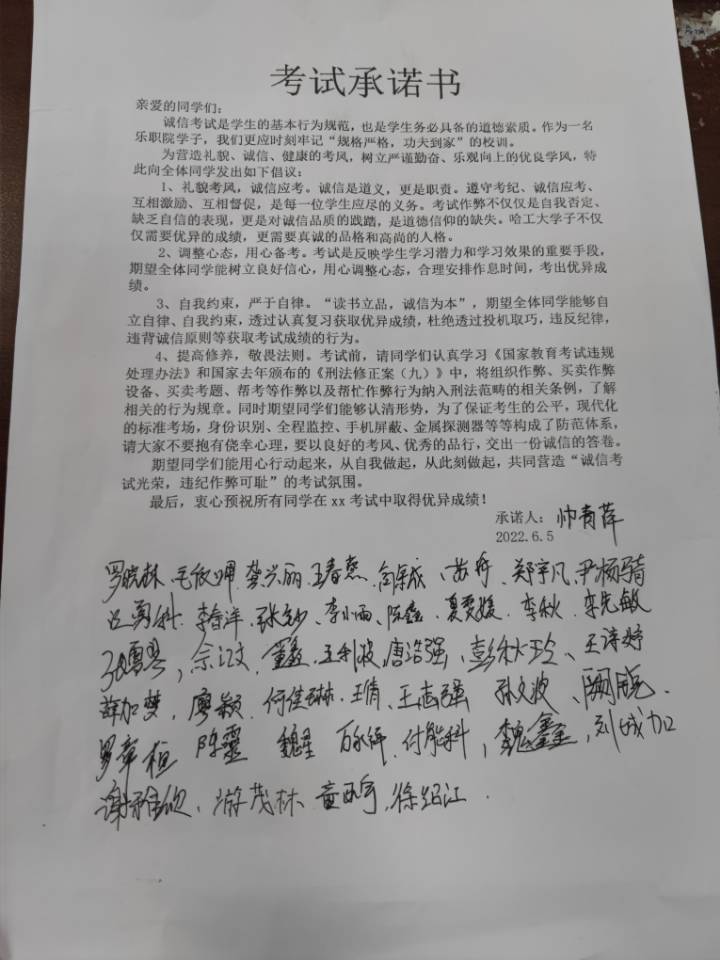 考试承诺书
亲爱的同学们：
诚信考试是学生的基本行为规范，也是学生务必具备的道德素质。作为一名
乐职院学子，我们更应时刻牢记“规格严格，功夫到家”的校训。
为营造礼貌、诚信、健康的考风，树立严谨勤奋、乐观向上的优良学风，特
此向全体同学发出如下倡议：
1、礼貌考风，诚信应考。诚信是道义，更是职责。遵守考纪、诚信应考、
互相激励、互相督促，是每一位学生应尽的义务。考试作弊不仅仅是自我否定、
缺乏自信的表现，更是对诚信品质的践踏，是道德信仰的缺失。哈工大学子不仅
仅需要优异的成绩，更需要真诚的品格和高尚的人格。
2、调整心态，用心备考。考试是反映学生学习潜力和学习效果的重要手段，
期望全体同学能树立良好信心，用心调整心态，合理安排作息时间，考出优异成
绩。
3、自我约束，严于自律。“读书立品，诚信为本”，期望全体同学能够自
立自律、自我约束，透过认真复习获取优异成绩，杜绝透过投机取巧，违反纪律，
违背诚信原则等获取考试成绩的行为。
4、提高修养，敬畏法则。考试前，请同学们认真学习《国家教育考试违规
处理办法》和国家去年颁布的《刑法修正案（九）》中，将组织作弊、买卖作弊
设备、买卖考题、帮考等作弊以及帮忙作弊行为纳入刑法范畴的相关条例，了解
相关的行为规章。同时期望同学们能够认清形势，为了保证考生的公平，现代化
的标准考场，身份识别、全程监控、手机屏蔽、金属探测器等等构成了防范体系，
请大家不要抱有侥幸心理，要以良好的考风、优秀的品行，交出一份诚信的答卷。
期望同学们能用心行动起来，从自我做起，从此刻做起，共同营造“诚信考
试光荣，违纪作弊可耻”的考试氛围。
最后，衷心预祝所有同学在xx考试中取得优异成绩！
承诺人：帅青萍
2022.6.5
罗晓林 龚兴丽 王春燕 苏丹、郑宇凡 尹杨骑
李春洋 李小雨 陈鑫 夏雯媛 李秋 李先敏
王利波 唐浩强、彭秋玲、王诗婷
薛加梦，廖颖 何佳琳 王倩、王志强 孙文波
罗章桓 陈灵 魏星 付能科，魏鑫，刘城加
谢雅欣、游茂林 徐绍江